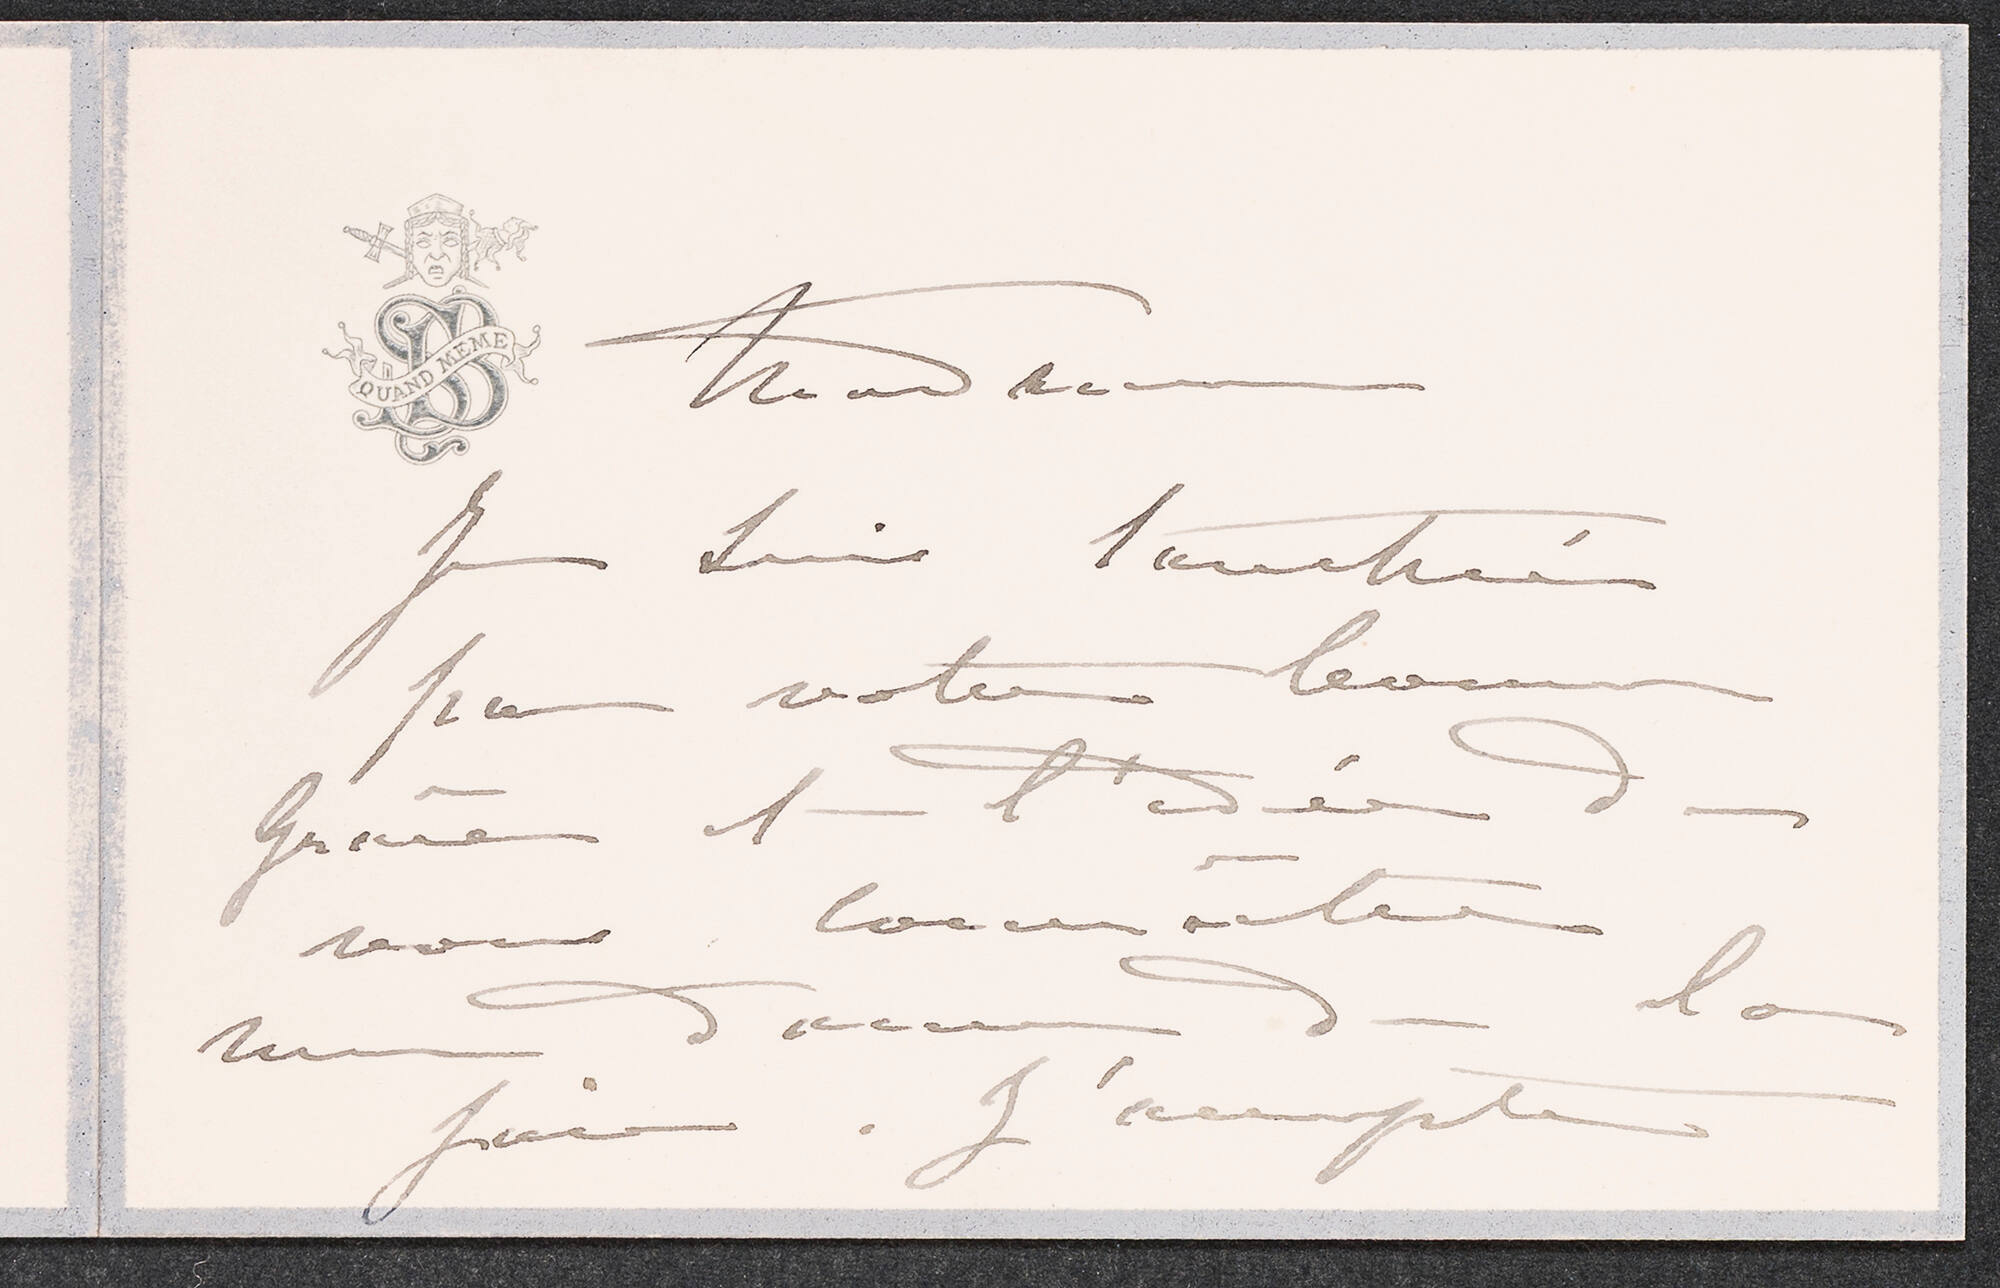 QUAND MEME
SB
Madame
Je suis touchée
par votre bonne
grâce et l'idée de
vous connaître
me donne de la
joie. J'accepte